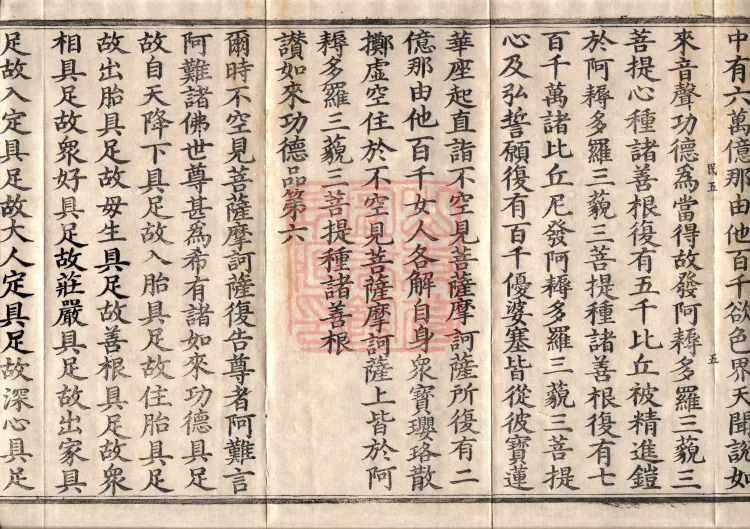 中有六萬億那由他百千欲色界天聞說如
民五
五
來音聲功德為當得故發阿耨多羅三藐三
菩提心種諸善根復有五千比丘被精進鎧
於阿耨多羅三藐三菩提種諸善根復有七
百千萬諸比丘尼發阿耨多羅三藐三菩提
心及弘誓願復有百千優婆塞皆從彼寶蓮
華座起直詣不空見菩薩摩訶薩所復有二
億那由他百千女人各解自身眾寶瓔珞散
擲虛空住於不空見菩薩摩訶薩上皆於阿
耨多羅三藐三菩提種諸善根
讃如來功德品第六
爾時不空見菩薩摩訶薩復告尊者阿難言
阿難諸佛世尊甚為希有諸如來功德具足
故自天降下具足故入胎具足故住胎具足
故出胎具足故母生具足故善根具足故眾
相具足故眾好具足故莊嚴具足故出家具
足故入定具足故大人定具足故深心具足